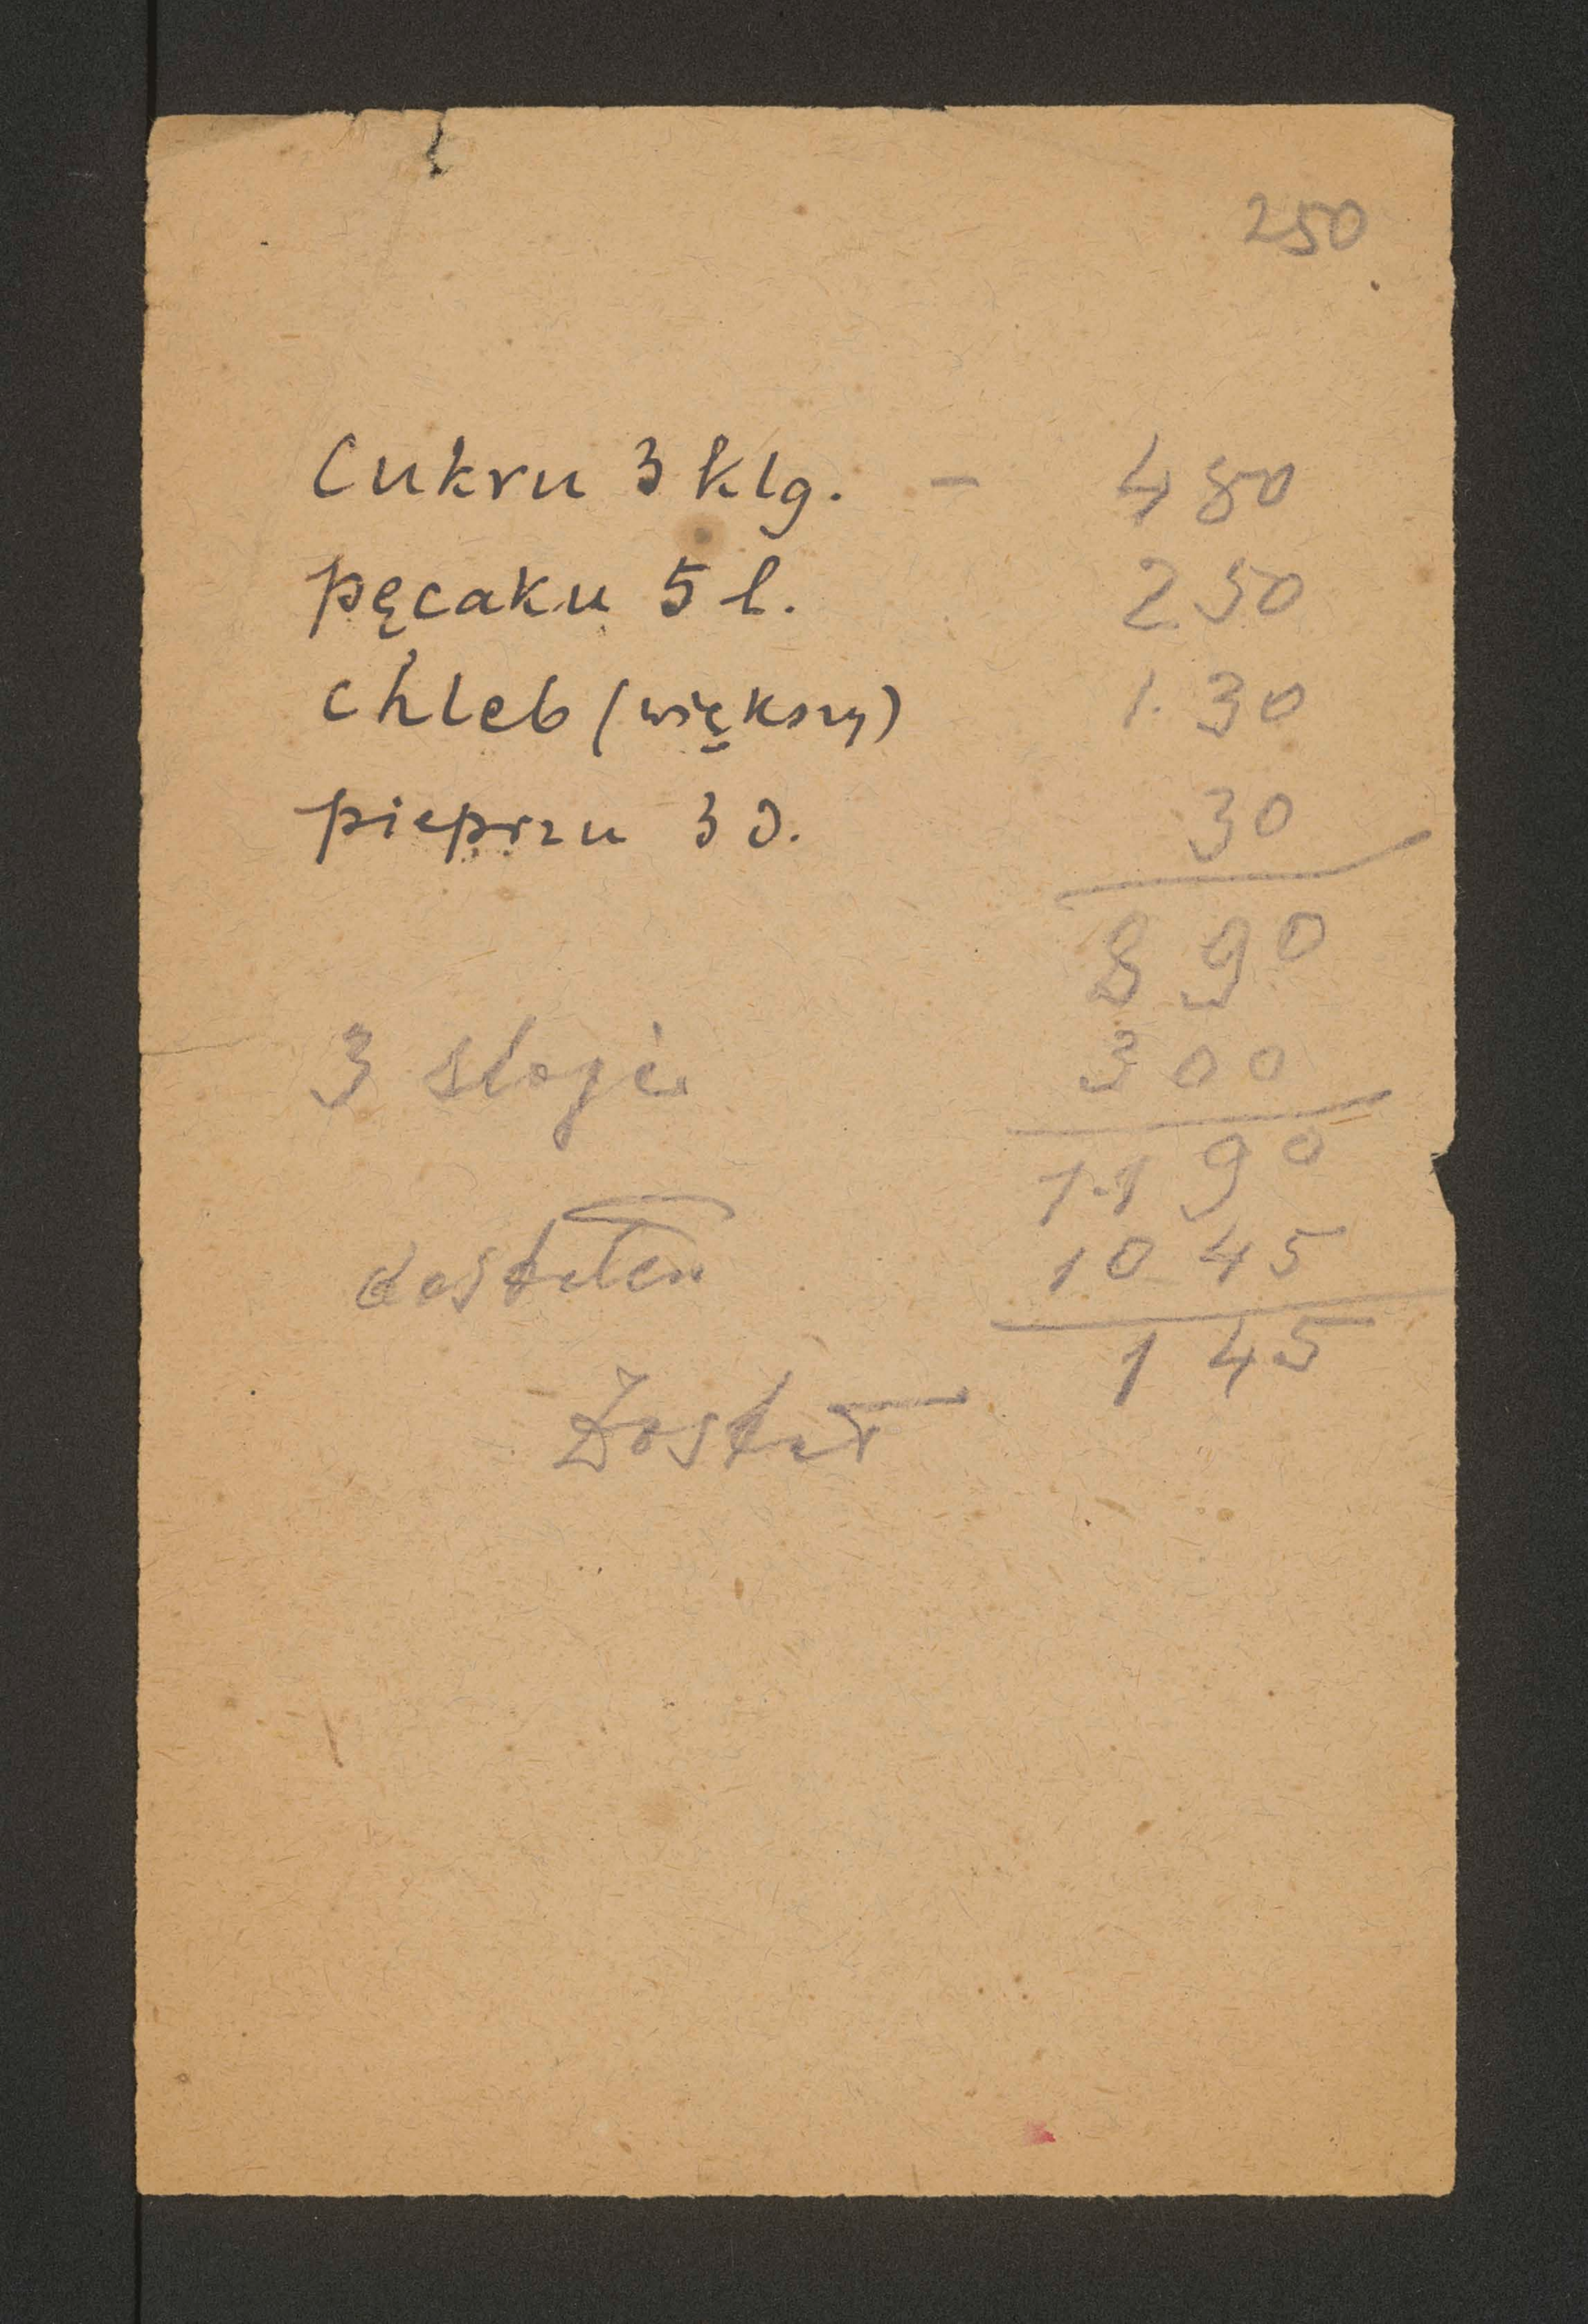 250
Cukru 3 klg. - 480
pęcaku 5 l. 250
chleb (większy) 1.30
pieprzu 3 d. 30
890
3 sloje 300
1190
dostałem 1045
145
Dostał